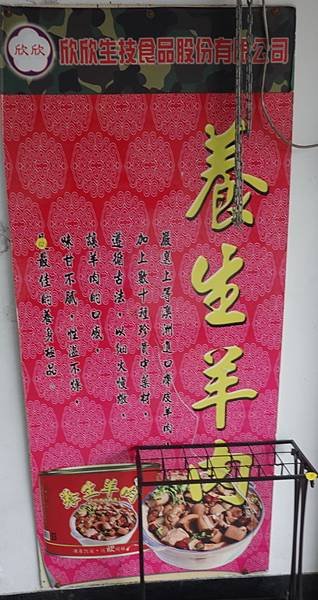 欣欣
欣欣生技食品股份有限公司
養生羊肉
嚴選上等澳洲進口帶皮羊肉，
加上數十種珍貴中藥材，
遵循古法，以細火慢燉，
讓羊肉的口感，
味甘不膩，性溫不燥，
最佳的養身極品。
養生羊肉